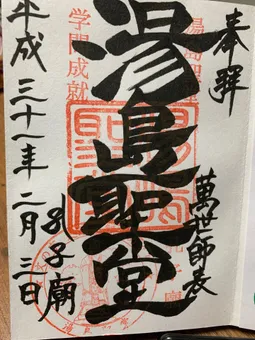 奉拜
萬世師表
湯島聖堂
学問成就
孔子廟
平成三十一年二月三日